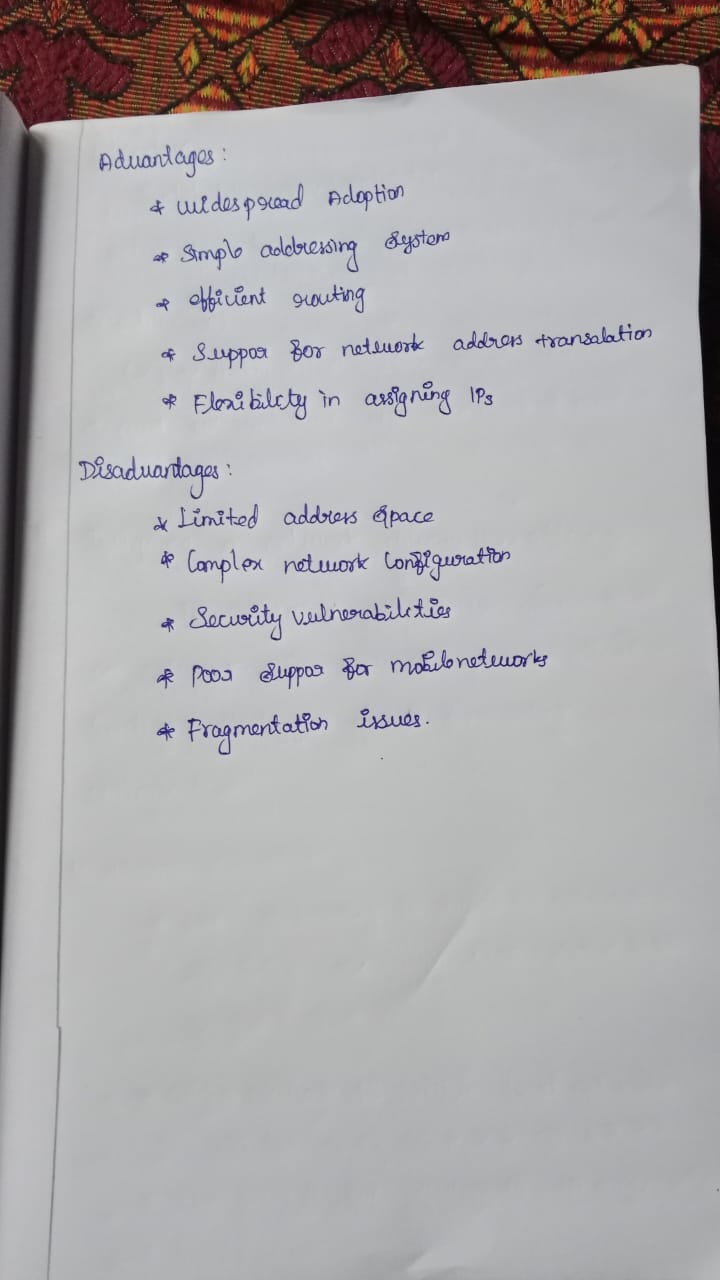 Advantages:
* widespread Adoption
* Simple addressing System
* efficient routing
* Suppor for network address transalation
* Flexibility in assigning IPs
Disadvantages:
* Limited address space
* Complex network Configuration
* Security vulnerabilities
* Poor Suppor for mobile networks
* Fragmentation issues.